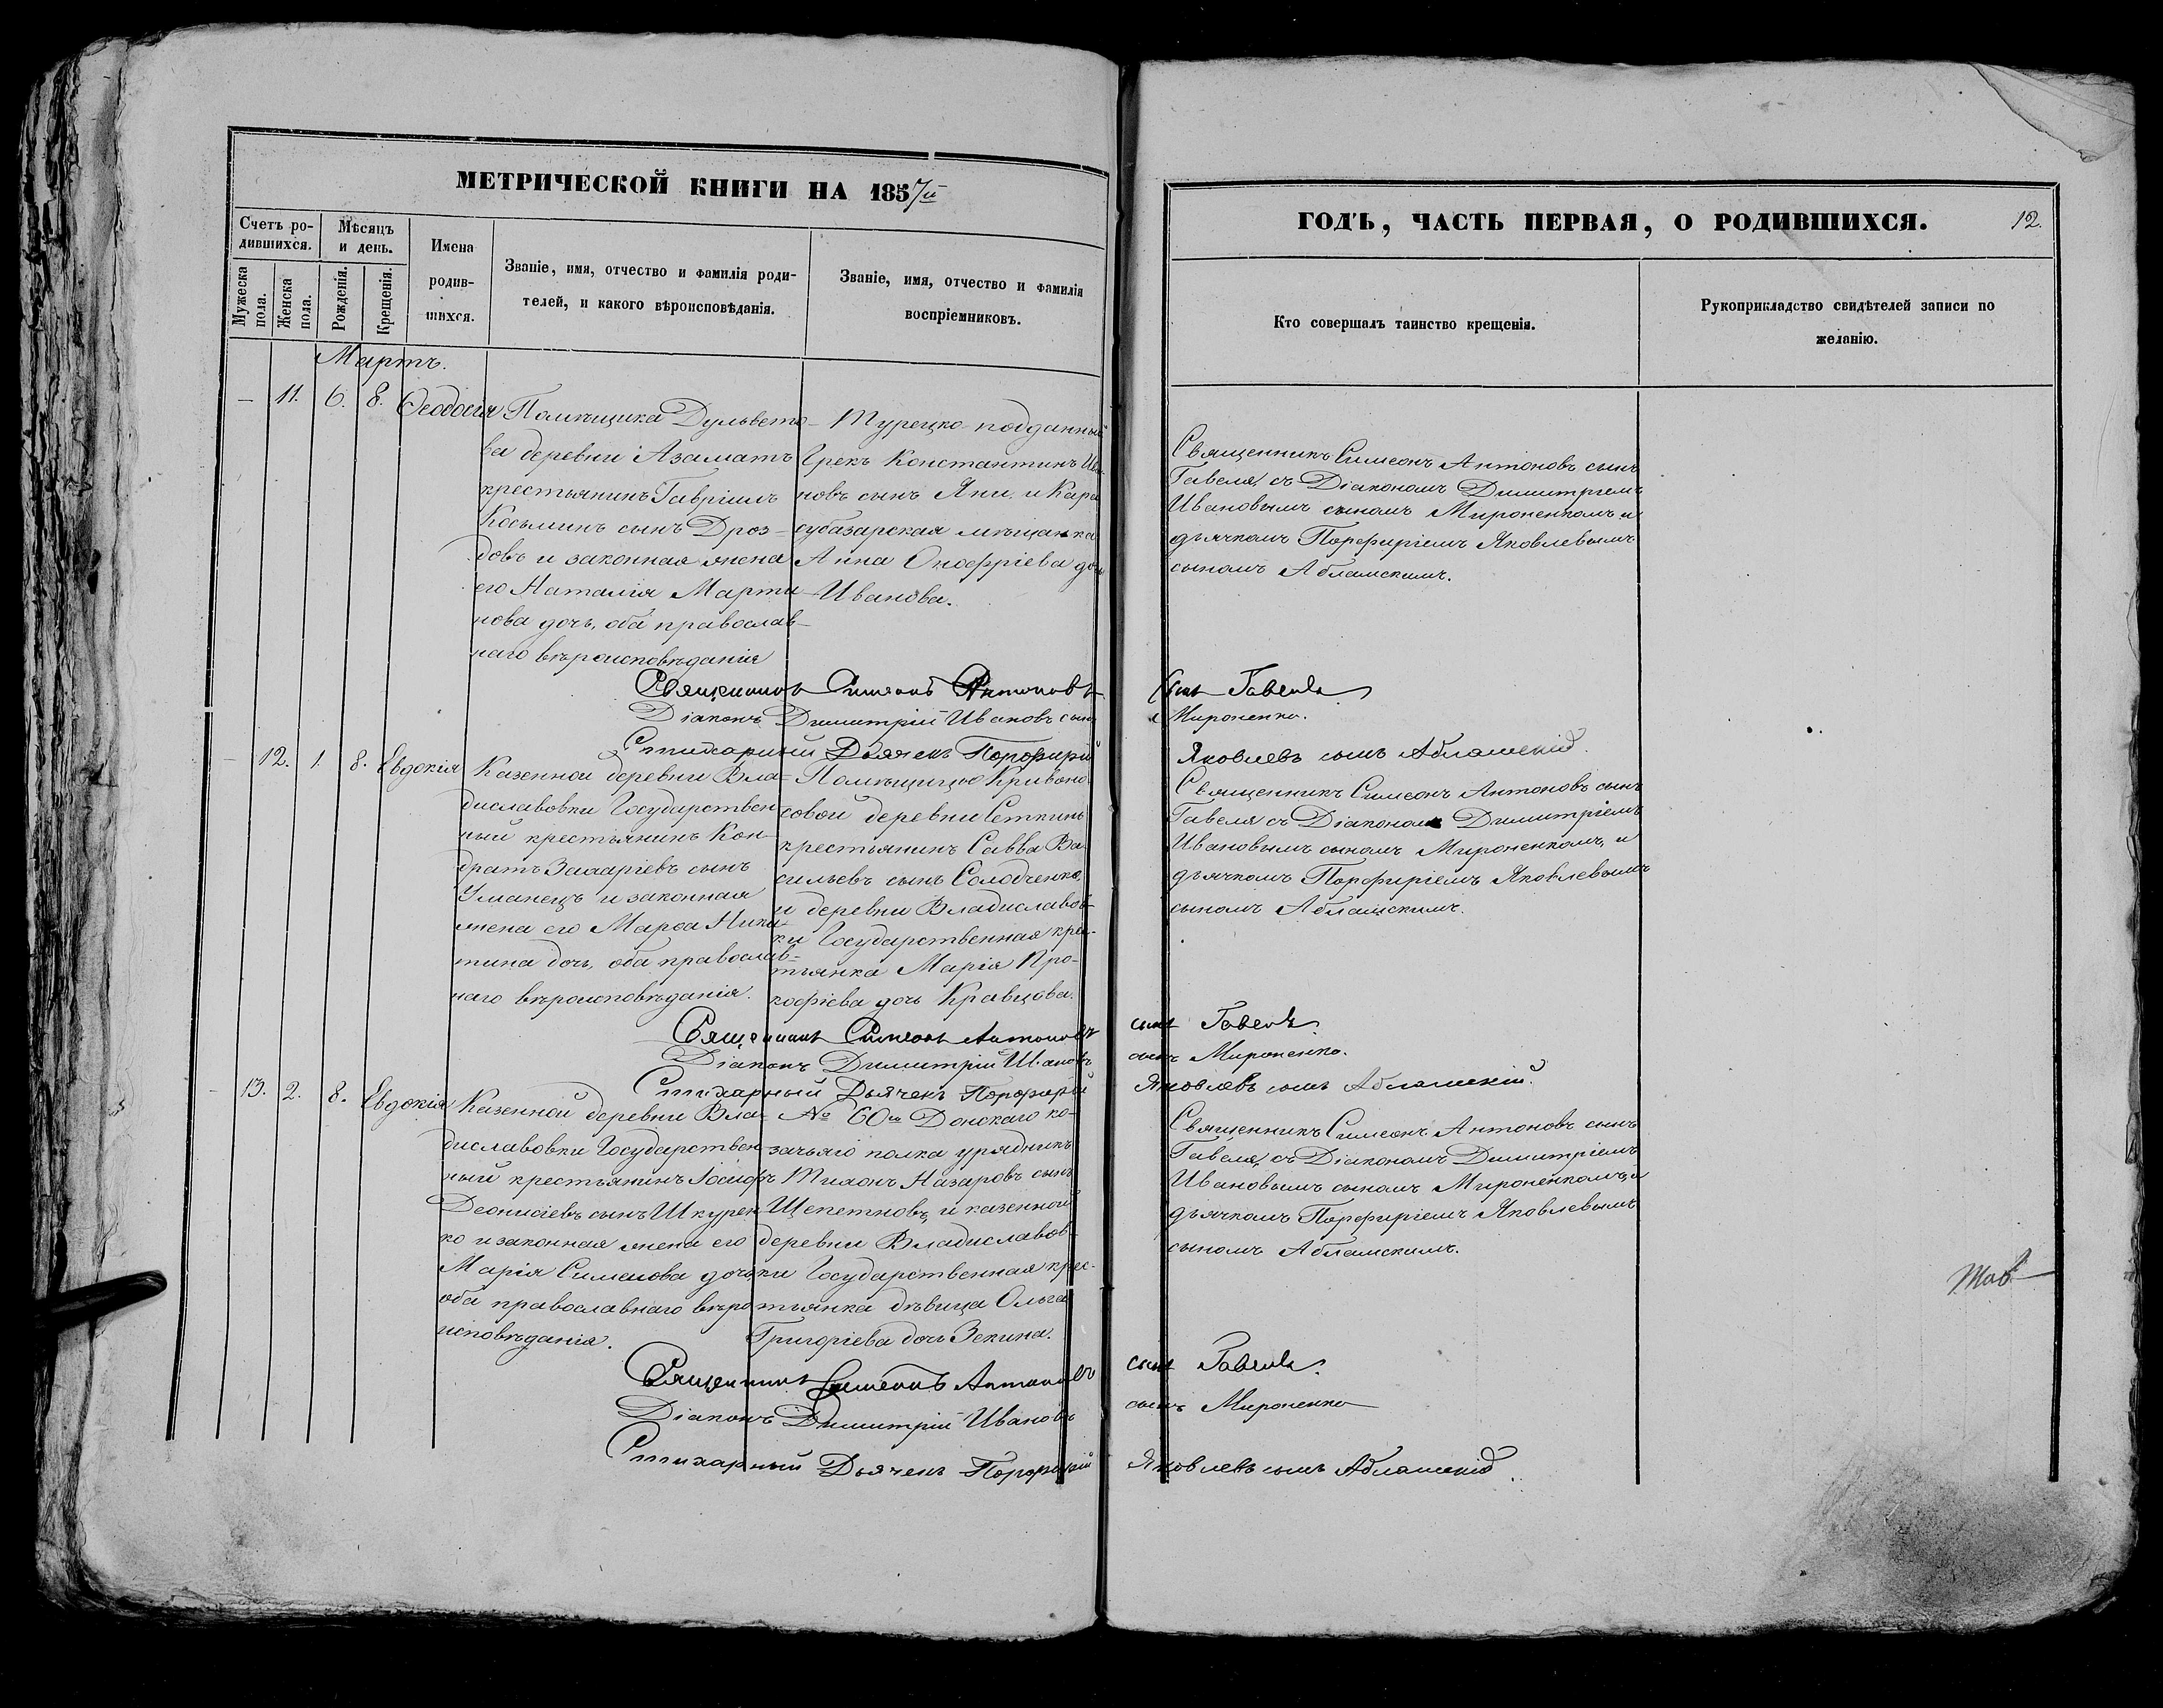 МЕТРИЧЕСКОЙ КНИГИ НА 1857й
Счетъ ро-
дившихся.
Мужеска
пола.
Женска
пола.
Мѣсяцъ
и день.
Рожденія.
Крещенія.
Имена
родив-
шихся.
Званіе, имя, отчество и фамилія роди-
телей, и какого вѣроисповѣданія.
Званіе, имя, отчество и фамилія
воспріемниковъ.
ГОДЪ, ЧАСТЬ ПЕРВАЯ, О РОДИВШИХСЯ.
12.
Кто совершалъ таинство крещенія.
Рукоприкладство свидѣтелей записи по
желанію.
Мартъ.
— 11. 6. 8. Ѳеодосія
Помѣщика Дульвето-
ва деревни Азаматъ
крестьянинъ Гавріилъ
Косьминъ сынъ Дроз-
довъ и законная жена
его Наталія Марти-
нова дочь, оба православ-
наго вѣроисповѣданія
Турецко-подданный
Грекъ Константинъ Ива-
новъ сынъ Яни, и Кара-
субазарская мѣщанка
Анна Онофріева дочь
Иванова.
Священникъ Симеонъ Антоновъ сынъ
Гавеля, съ Діакономъ Димитріемъ
Ивановымъ сыномъ Мироненкомъ и
дьячкомъ Порфиріемъ Яковлевымъ
сыномъ Абламскимъ.
Священникъ Симеонъ Антоновъ сынъ Гавеля
Діаконъ Димитрій Ивановъ сынъ Мироненко.
Стихарный Дьячекъ Порфирій Яковлевъ сынъ Абламскій.
— 12. 1. 8. Евдокія
Казенной деревни Вла-
диславовки Государствен
ный крестьянинъ Кон-
дратъ Захаріевъ сынъ
Уманецъ и законная
жена его Марѳа Ники-
тина дочь, оба православ-
наго вѣроисповѣданія.
Помѣщицы Кривоно-
совой деревни Сеткинъ
крестьянинъ Савва Ва-
сильевъ сынъ Солодченко,
и деревни Владиславов-
ки Государственная крес-
тьянка Марія Про-
кофіева дочь Кравцова.
Священникъ Симеонъ Антоновъ сынъ
Гавеля съ Діакономъ Димитріемъ
Ивановымъ сыномъ Мироненкомъ, и
дьячкомъ Порфиріемъ Яковлевымъ
сыномъ Абламскимъ.
Священникъ Симеонъ Антоновъ сынъ Гавеля.
Діаконъ Димитрій Ивановъ сынъ Мироненко.
Стихарный Дьячекъ Порфирій Яковлевъ сынъ Абламскій.
— 13. 2. 8. Евдокія
Казенной деревни Вла-
диславовки Государствен
ный крестьянинъ Іосифъ
Деонисіевъ сынъ Шкурен
ко и законная жена его
Марія Симеонова дочь
оба православнаго вѣро
исповѣданія.
№ 60го Донскаго ко-
зачьяго полка урядникъ
Тихонъ Назаровъ сынъ
Щепетновъ, и казенной
деревни Владиславов-
ки Государственная крес-
тьянка дѣвица Ольга
Григоріева дочь Зекина.
Священникъ Симеонъ Антоновъ сынъ
Гавеля, съ Діакономъ Димитріемъ
Ивановымъ сыномъ Мироненкомъ, и
дьячкомъ Порфиріемъ Яковлевымъ
сыномъ Абламскимъ.
Священникъ Симеонъ Антоновъ сынъ Гавеля.
Діаконъ Димитрій Ивановъ сынъ Мироненко
Стихарный Дьячекъ Порфирій Яковлевъ сынъ Абламскій